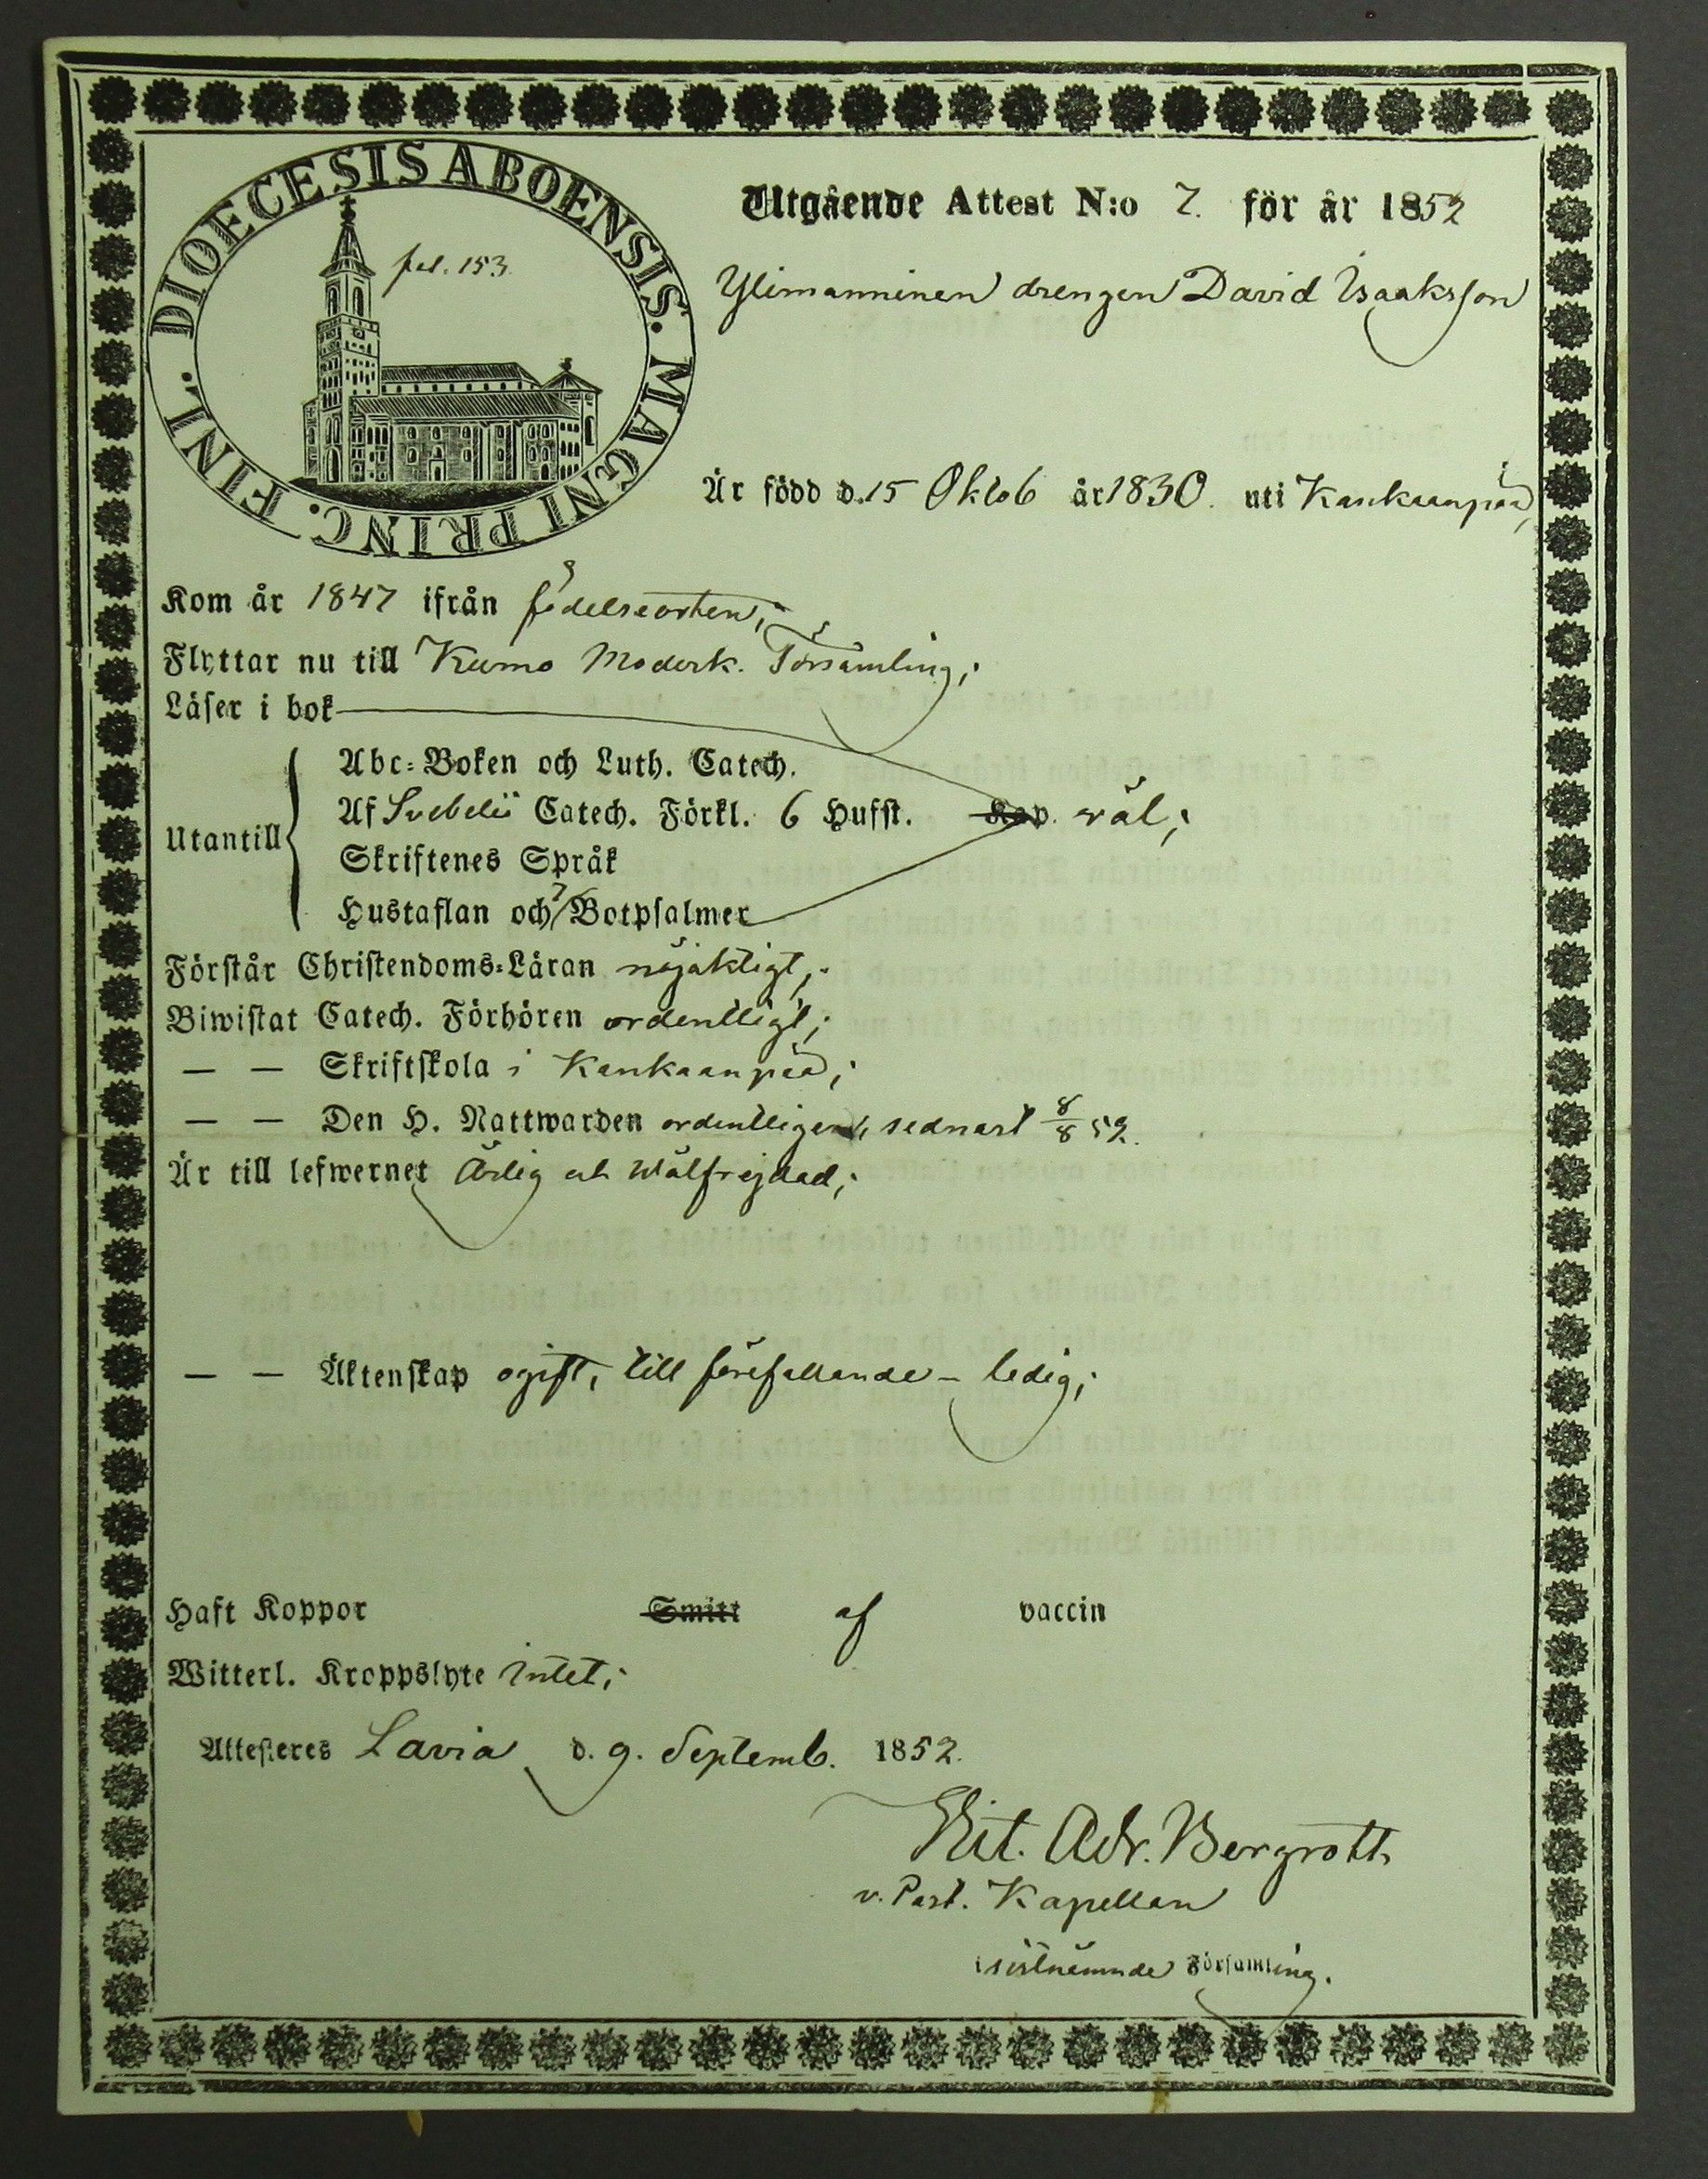 DIOECESIS ABOENSIS. MAGNI PRINC. FINL.
fol. 153.
Utgående Attest N:o 7. för år 1852
Ylimanninen drengen David Isaaksson
Är född d. 15 Oktob år 1830. uti Kankaanpää,
Kom år 1847 ifrån födelseorten;
Flyttar nu till Kumo Moderk. Församling;
Läser i bok
Utantill
Abc-Boken och Luth. Catech.
Af Svebelii Catech. Förkl. 6 Hufst. Kap. wäl;
Skriftenes Språk
Hustaflan och 7 Botpsalmer
Förstår Christendoms-Läran nöjaktigt;
Biwistat Catech. Förhören ordentligt;
— — Skriftskola i Kankaanpää;
— — Den H. Nattwarden sednast 8/8 52.
Är till lefwernet Ärlig och wälfrejdad;
— — Äktenskap ogift, till förefallande – ledig;
Haft Koppor Smitt af vaccin
Witterl. Kroppslyte intet;
Attesteres Lavia d. 9. Septemb. 1852.
Adr. Bergroth
v. Past. Kapellan
i sistnämnde Församling.